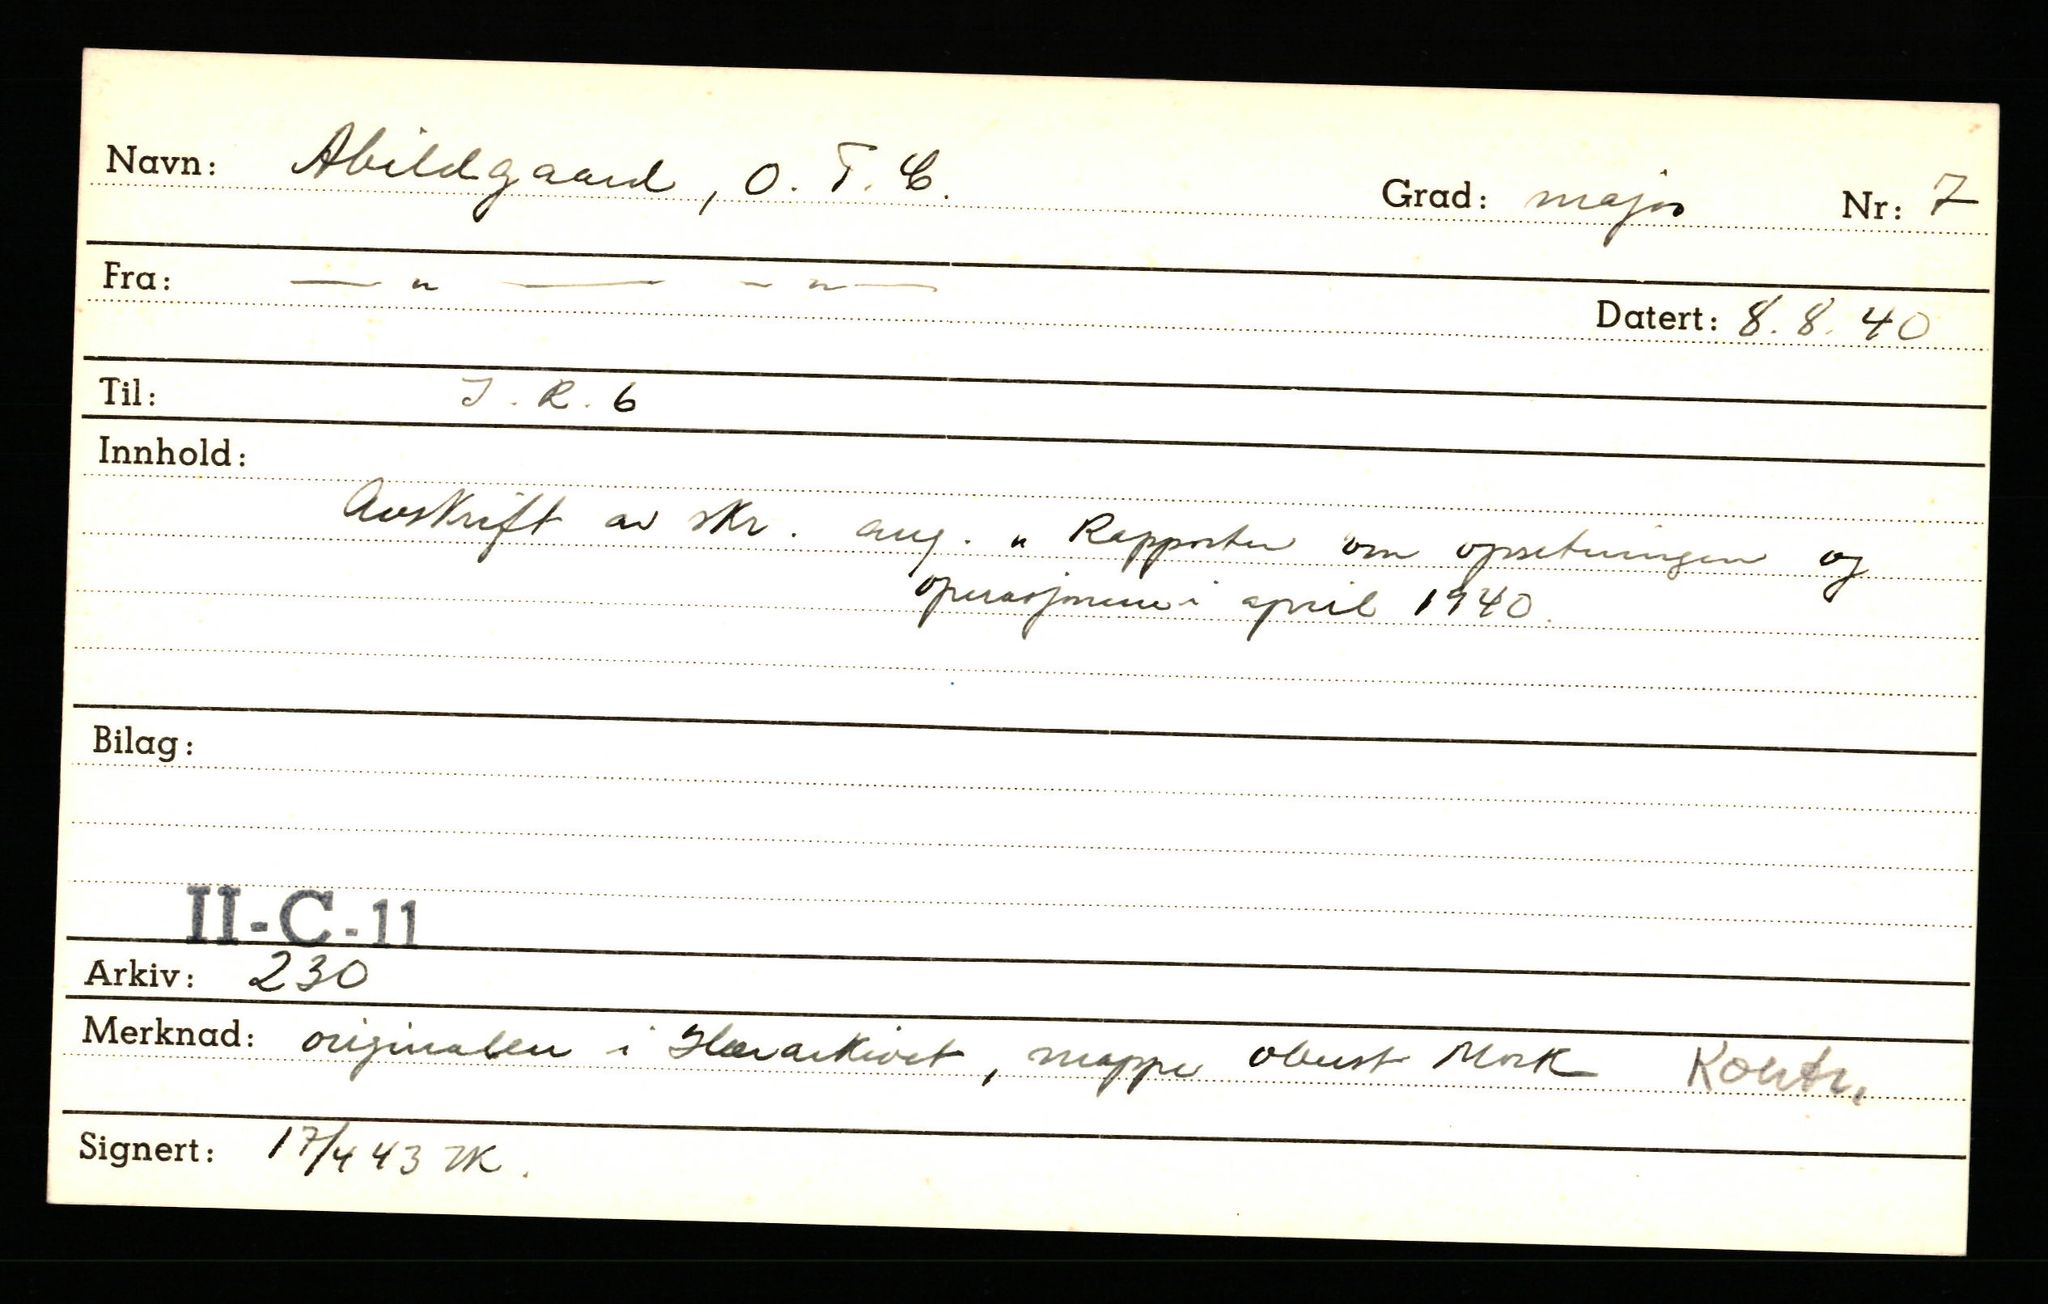 Navn: Abildgaard, O. T. C. Grad: major Nr: 7
Fra: — " — — " —
Datert: 8.8.40
Til: I.R. 6
Innhold:
Avskrift av skr. ang. „ Rapporten om opsetningen og
operasjonene i april 1940.
Bilag:
II-C-11
Arkiv: 230
Merknad: originalen i Hærarkivet, mappe oberst Mork Kontr.
Signert: 17/4 43 JK.